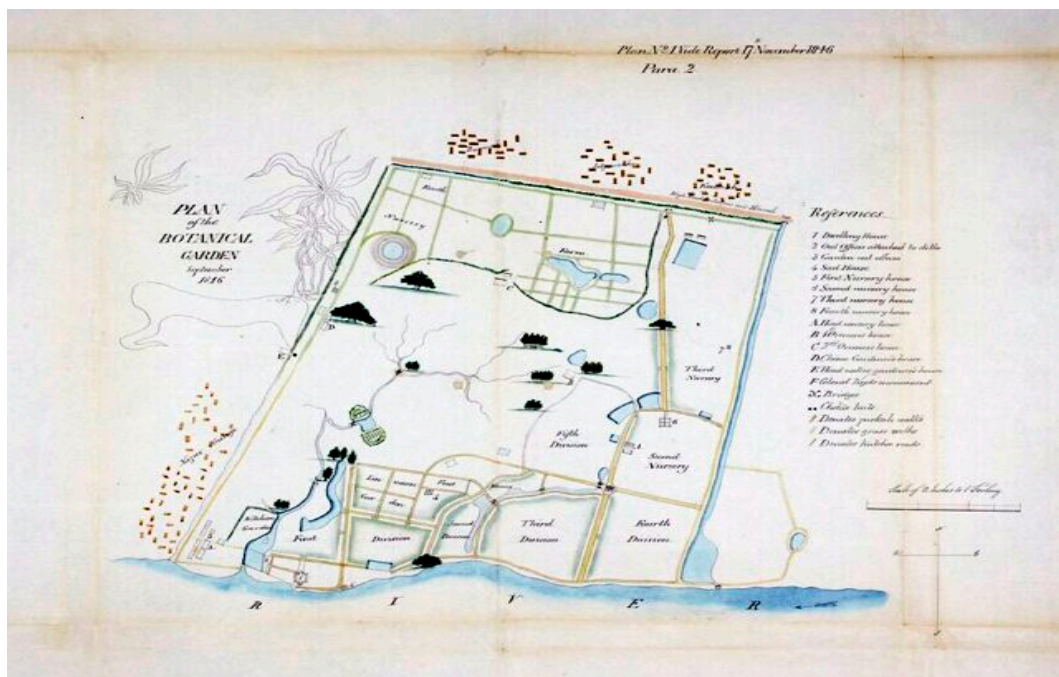 Plan No. 1 Vide Report 17th November 1846
Para 2
PLAN
of the
BOTANICAL
GARDEN
September
1846
Fourth
Nursery
Farm
C
D
E
Third
Nursery
7
6
Fifth
Division
Second
Nursery
Lin
Garden
First
4
Kitchen
Garden
First
Division
Second
Division
Third
Division
Fourth
Division
R I V E R
References
1 Dwelling House
2 Out Offices attached to ditto
3 Garden out offices
4 Seed House
5 First Nursery house
6 Second nursery house
7 Third nursery house
8 Fourth nursery house
A Head nursery house
B Overseers house
C 2nd Overseers house
D Chinese Gardener's house
E Head native gardener's house
F Colonel Kyd's monument
Bridges
huts
Denotes walks
Denotes grass walks
Denotes roads
Scale of 2 Inches to 1 Furlong